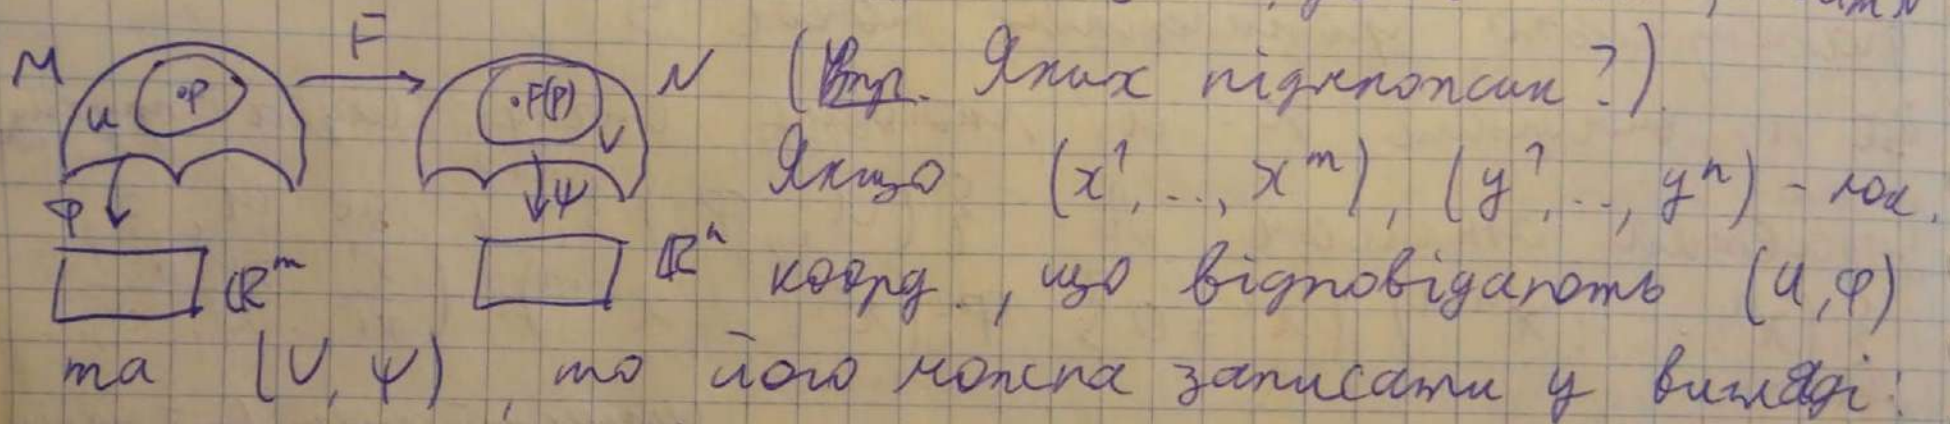 M F N (Впр. Яких підмножин?).
U •p •F(p) V
Якщо (x¹, ..., xᵐ), (y¹, ..., yⁿ) - лок.
φ ψ
ℝᵐ ℝⁿ коорд., що відповідають (U, φ)
та (V, ψ), то його можна записати у вигляді: